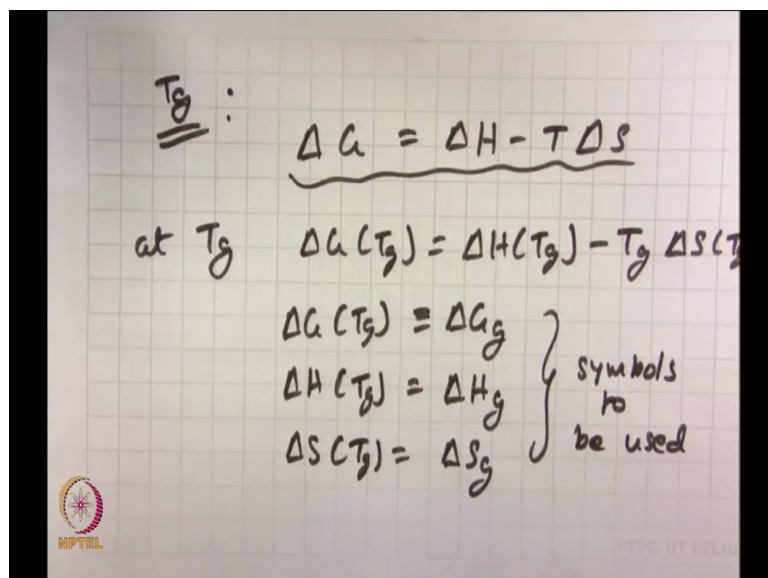 Tg :
ΔG = ΔH - TΔS
at Tg ΔG(Tg) = ΔH(Tg) - Tg ΔS(Tg
ΔG(Tg) ≡ ΔGg
ΔH(Tg) = ΔHg
ΔS(Tg) = ΔSg
symbols
to
be used
NPTEL
ETSC, IIT DELHI